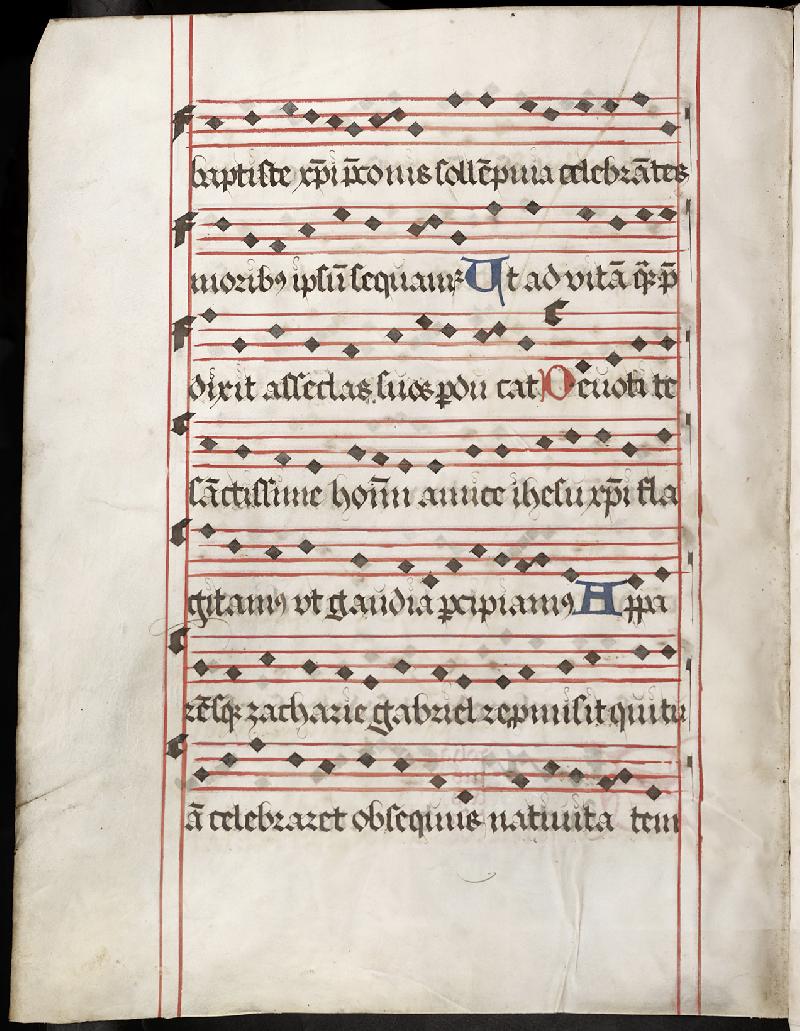 baptiste xp̄i p̄conis sollēpnia celebrātes
moribꝰ ipsū sequamꝛ Ut ad vitā q̄ꝫ p̄
dixit asseclas suos ꝑdu cat Deuoti te
sāctissime hoīm amice ihesu xp̄i fla
gitamꝰ vt gaudia ꝑcipiamꝰ Appa
rēsqꝫ zacharie gabriel repmisit qui tu
ā celebraret obsequiis natiuita tem